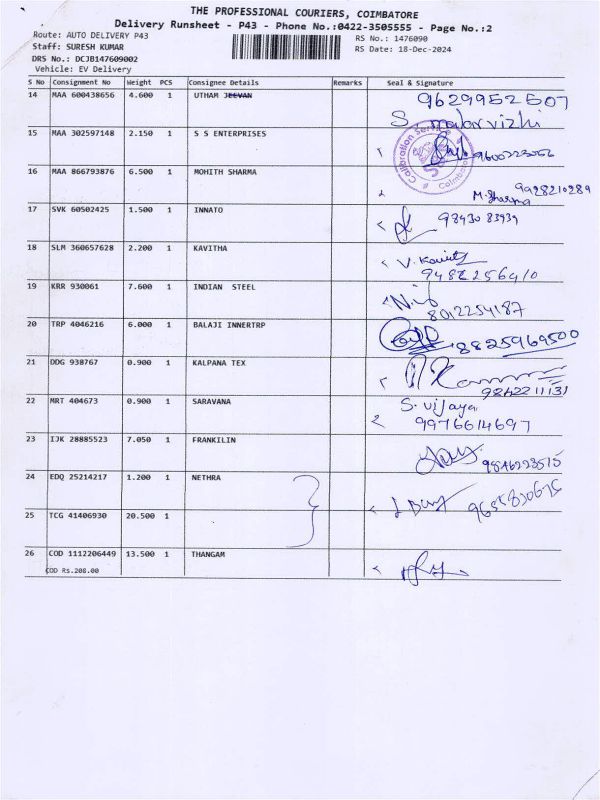 THE PROFESSIONAL COURIERS, COIMBATORE
Delivery Runsheet - P43 - Phone No.:0422-3505555 - Page No.:2
Route: AUTO DELIVERY P43 RS No.: 1476090
Staff: SURESH KUMAR RS Date: 18-Dec-2024
DRS No.: DCJB147609002
Vehicle: EV Delivery
S No Consignment No Weight PCS Consignee Details Remarks Seal & Signature
14 MAA 600438656 4.600 1 UTHAM JEEVAN 9629952507
S. malarvizhi
15 MAA 302597148 2.150 1 S S ENTERPRISES
Calibration Service Coimbatore
16 MAA 866793876 6.500 1 MOHITH SHARMA 9928210289
M. Sharma
17 SVK 60502425 1.500 1 INNATO 98430 83939
18 SLM 360657628 2.200 1 KAVITHA V. Kavitha
9488256410
19 KRR 930061 7.600 1 INDIAN STEEL
8012254187
20 TRP 4046216 6.000 1 BALAJI INNERTRP 8825969500
21 DDG 938767 0.900 1 KALPANA TEX
9842211131
22 MRT 404673 0.900 1 SARAVANA S. vijaya
9976614697
23 IJK 28885523 7.050 1 FRANKILIN
9846223575
24 EDQ 25214217 1.200 1 NETHRA
9655820675
25 TCG 41406930 20.500 1
26 COD 1112206449 13.500 1 THANGAM
COD Rs.208.00